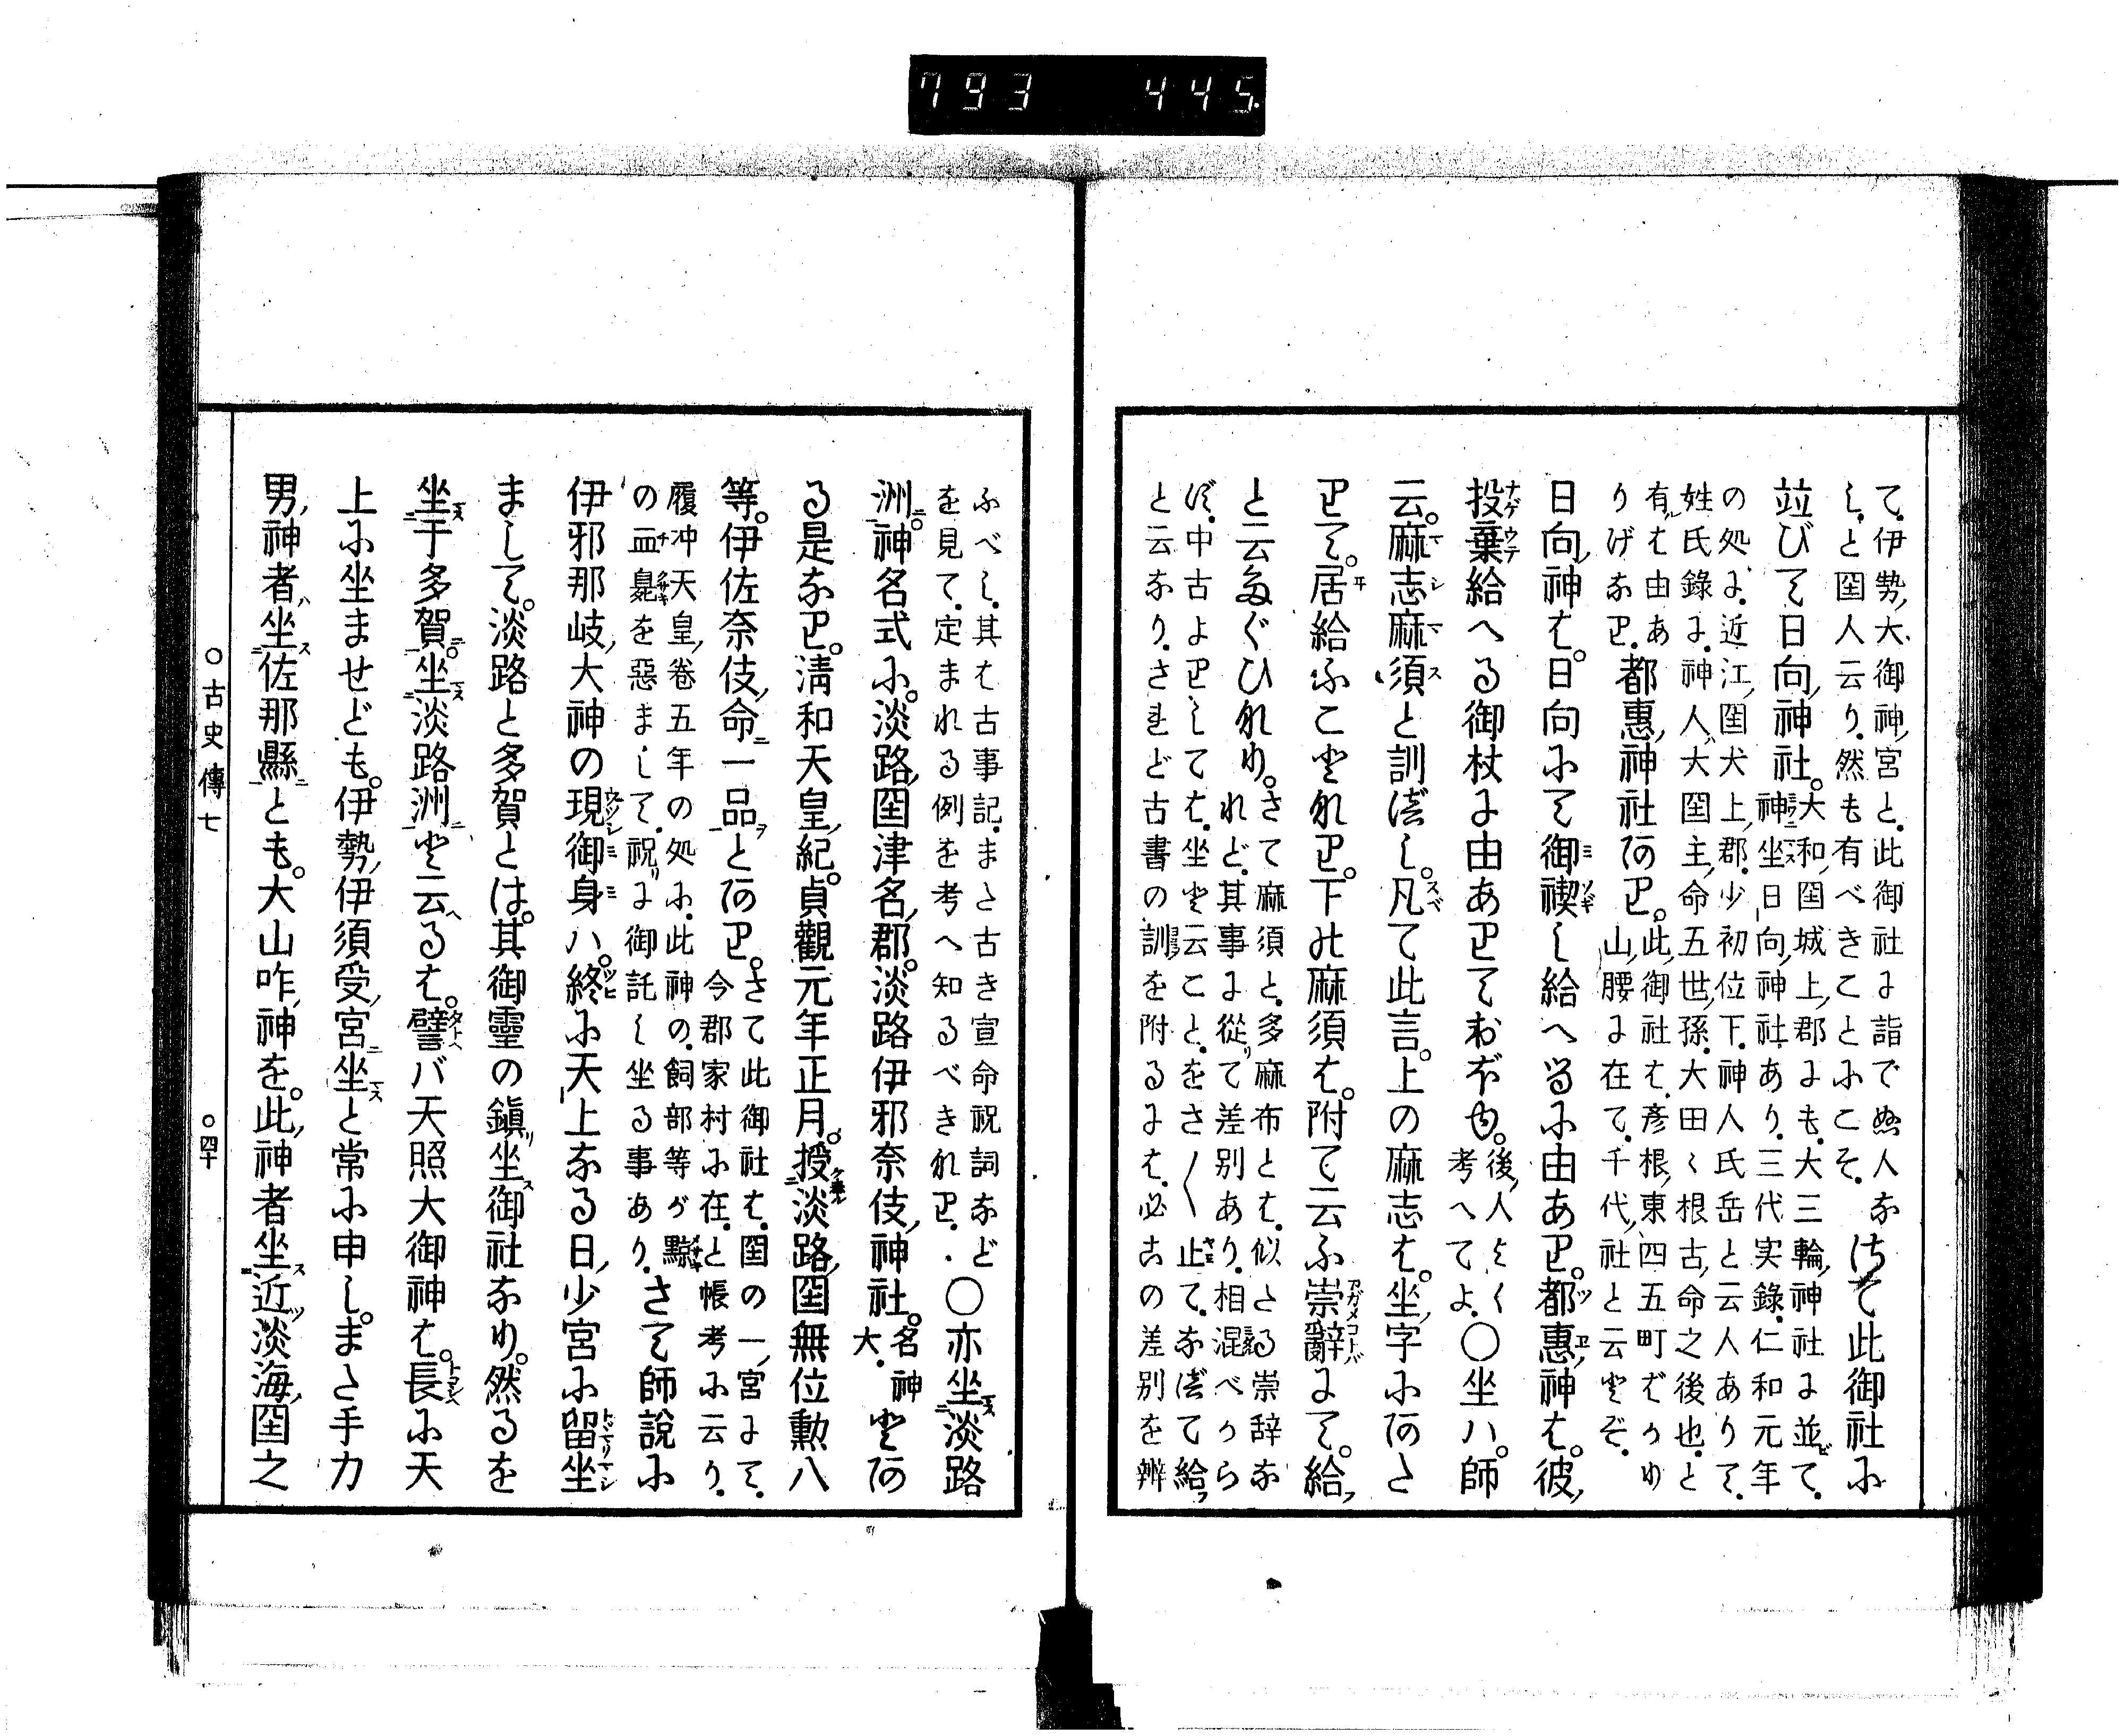 793 445
て伊勢大御神宮と此御社に詣でぬ人なし
と国人云り然も有べきことにこそ さて此御社に
並びて日向神社 大和国城上郡にも大三輪神社に並びて
神坐日向神社あり三代実録仁和元年
の処に近江国犬上郡少初位下神人氏岳と云人ありて
姓氏録に神人大国主命五世孫大田々根古命之後也と
有は由あ
りげなり 都恵神社あり 此御社は彦根東四五町ばかり
山腰に在て千代社と云とぞ
日向神は日向にて御禊し給へるに由あり都恵神は彼
投棄給へる御杖に由ありておぼゆ 後人よく
考へてよ ○坐ハ師
云麻志麻須と訓べし凡て此言上の麻志は坐字にあた
りて居給ふことなり下の麻須は附て云ふ崇辭にて給
と云たぐひなり さて麻須と多麻布とは似たる崇辞な
れど其事に従て差別あり相混べから
ず中古よりしては坐と云ことをさ〱止てなべて給
と云なりされど古書の訓を附るには必古の差別を辨
ふべし其は古事記また古き宣命祝詞など
を見て定まれる例を考へ知るべきなり ○亦坐淡路
洲神名式に淡路国津名郡淡路伊邪奈伎神社 名神
大 とあ
る是なり清和天皇紀貞觀元年正月授淡路国無位勲八
等伊佐奈伎命一品とあり さて此御社は国の一宮にて
今郡家村に在と帳考に云り
履冲天皇巻五年の処に此神の飼部等が黥
の血臭を惡まして祝に御託し坐る事あり さて師說に
伊邪那岐大神の現御身ハ終に天上なる日少宮に留坐
まして淡路と多賀とは其御靈の鎭坐御社なり然るを
坐于多賀坐淡路洲と云るは譬バ天照大御神は長に天
上に坐ませども伊勢伊須受宮坐と常に申しまた手力
男神者坐佐那縣とも大山咋神を此神者坐近淡海国之
○古史傳七 ○四十